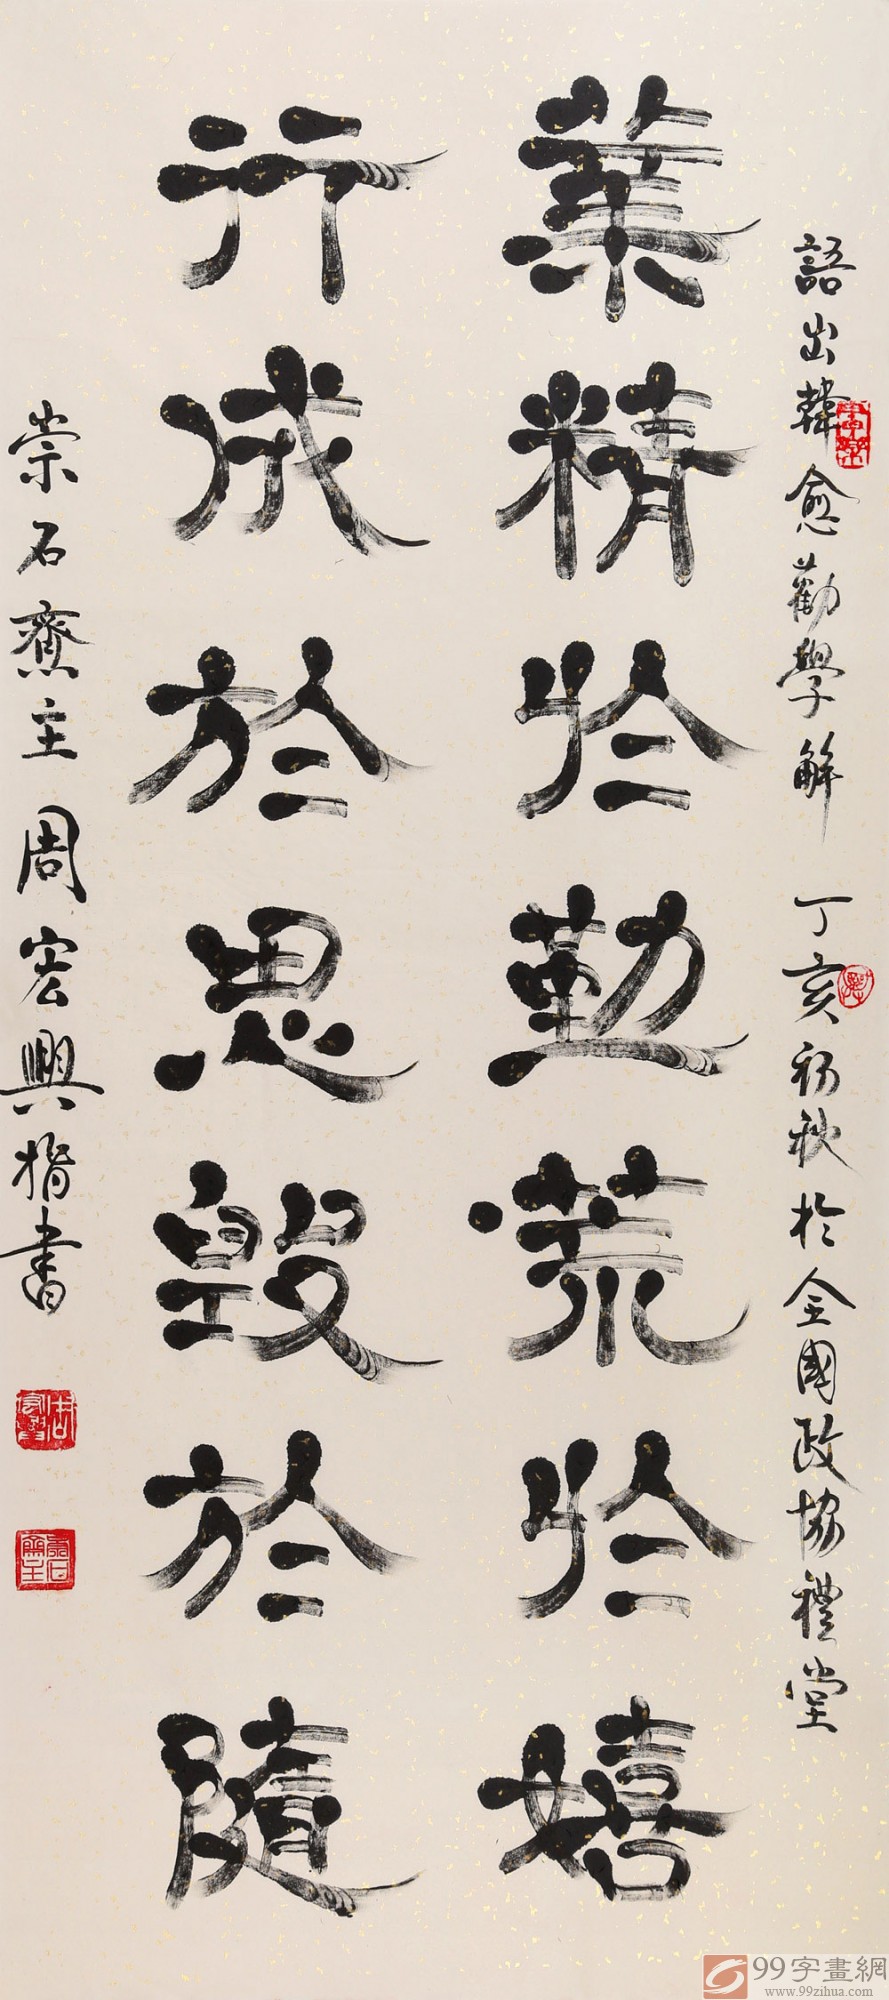 語出韓愈勸學解 丁亥初秋於全國政協禮堂
業精於勤荒於嬉
行成於思毀於隨
崇石齋主周宏興指書
周宏興
崇石齋主
99字畫網
www.99zihua.com